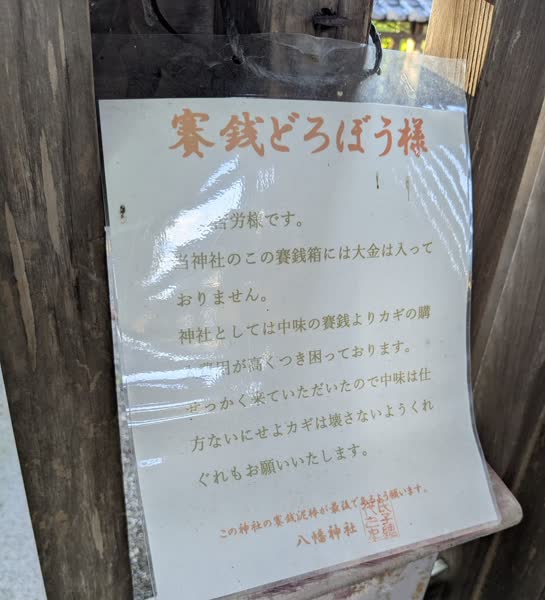 賽銭どろぼう様
苦労様です。
当神社のこの賽銭箱には大金は入って
おりません。
神社としては中味の賽銭よりカギの購
用が高くつき困っております。
せっかく来ていただいたので中味は仕
方ないにせよカギは壊さないようくれ
ぐれもお願いいたします。
この神社の賽銭泥棒が最後であるよう願います。
八幡神社